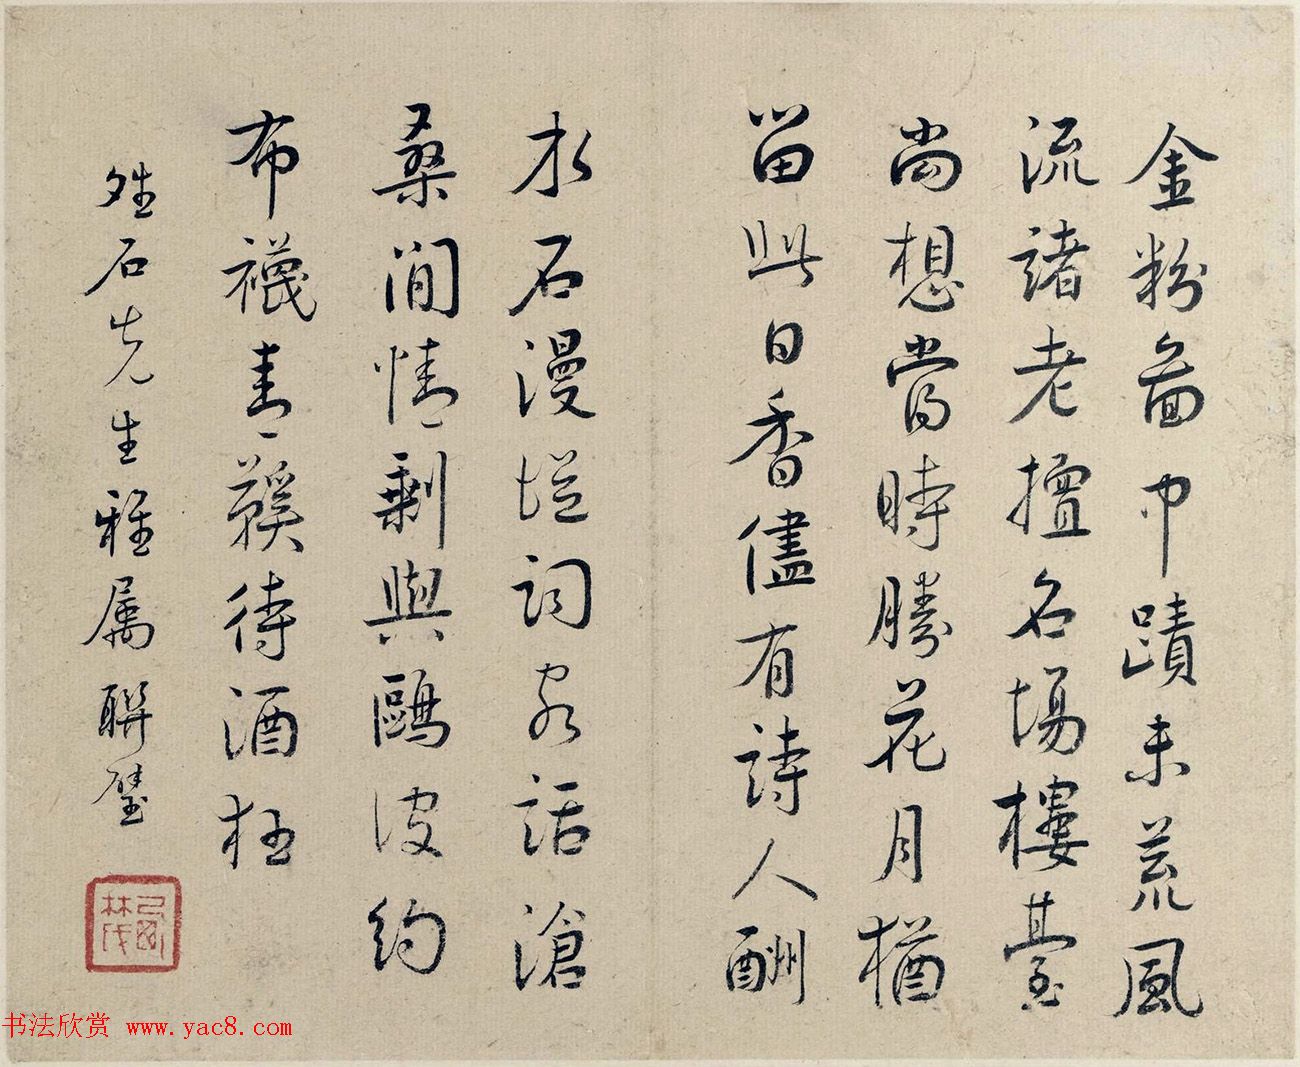 金粉啚巾蹟未荒風
流諸老擅名場樓臺
尚想當時勝花月猶
留與日香儘有詩人酬
水石漫從詞客話滄
桑閒情剩與鷗波約
布襪青鞵待酒枉
姓石先生雅属聯璧
书法欣赏 www.yac8.com